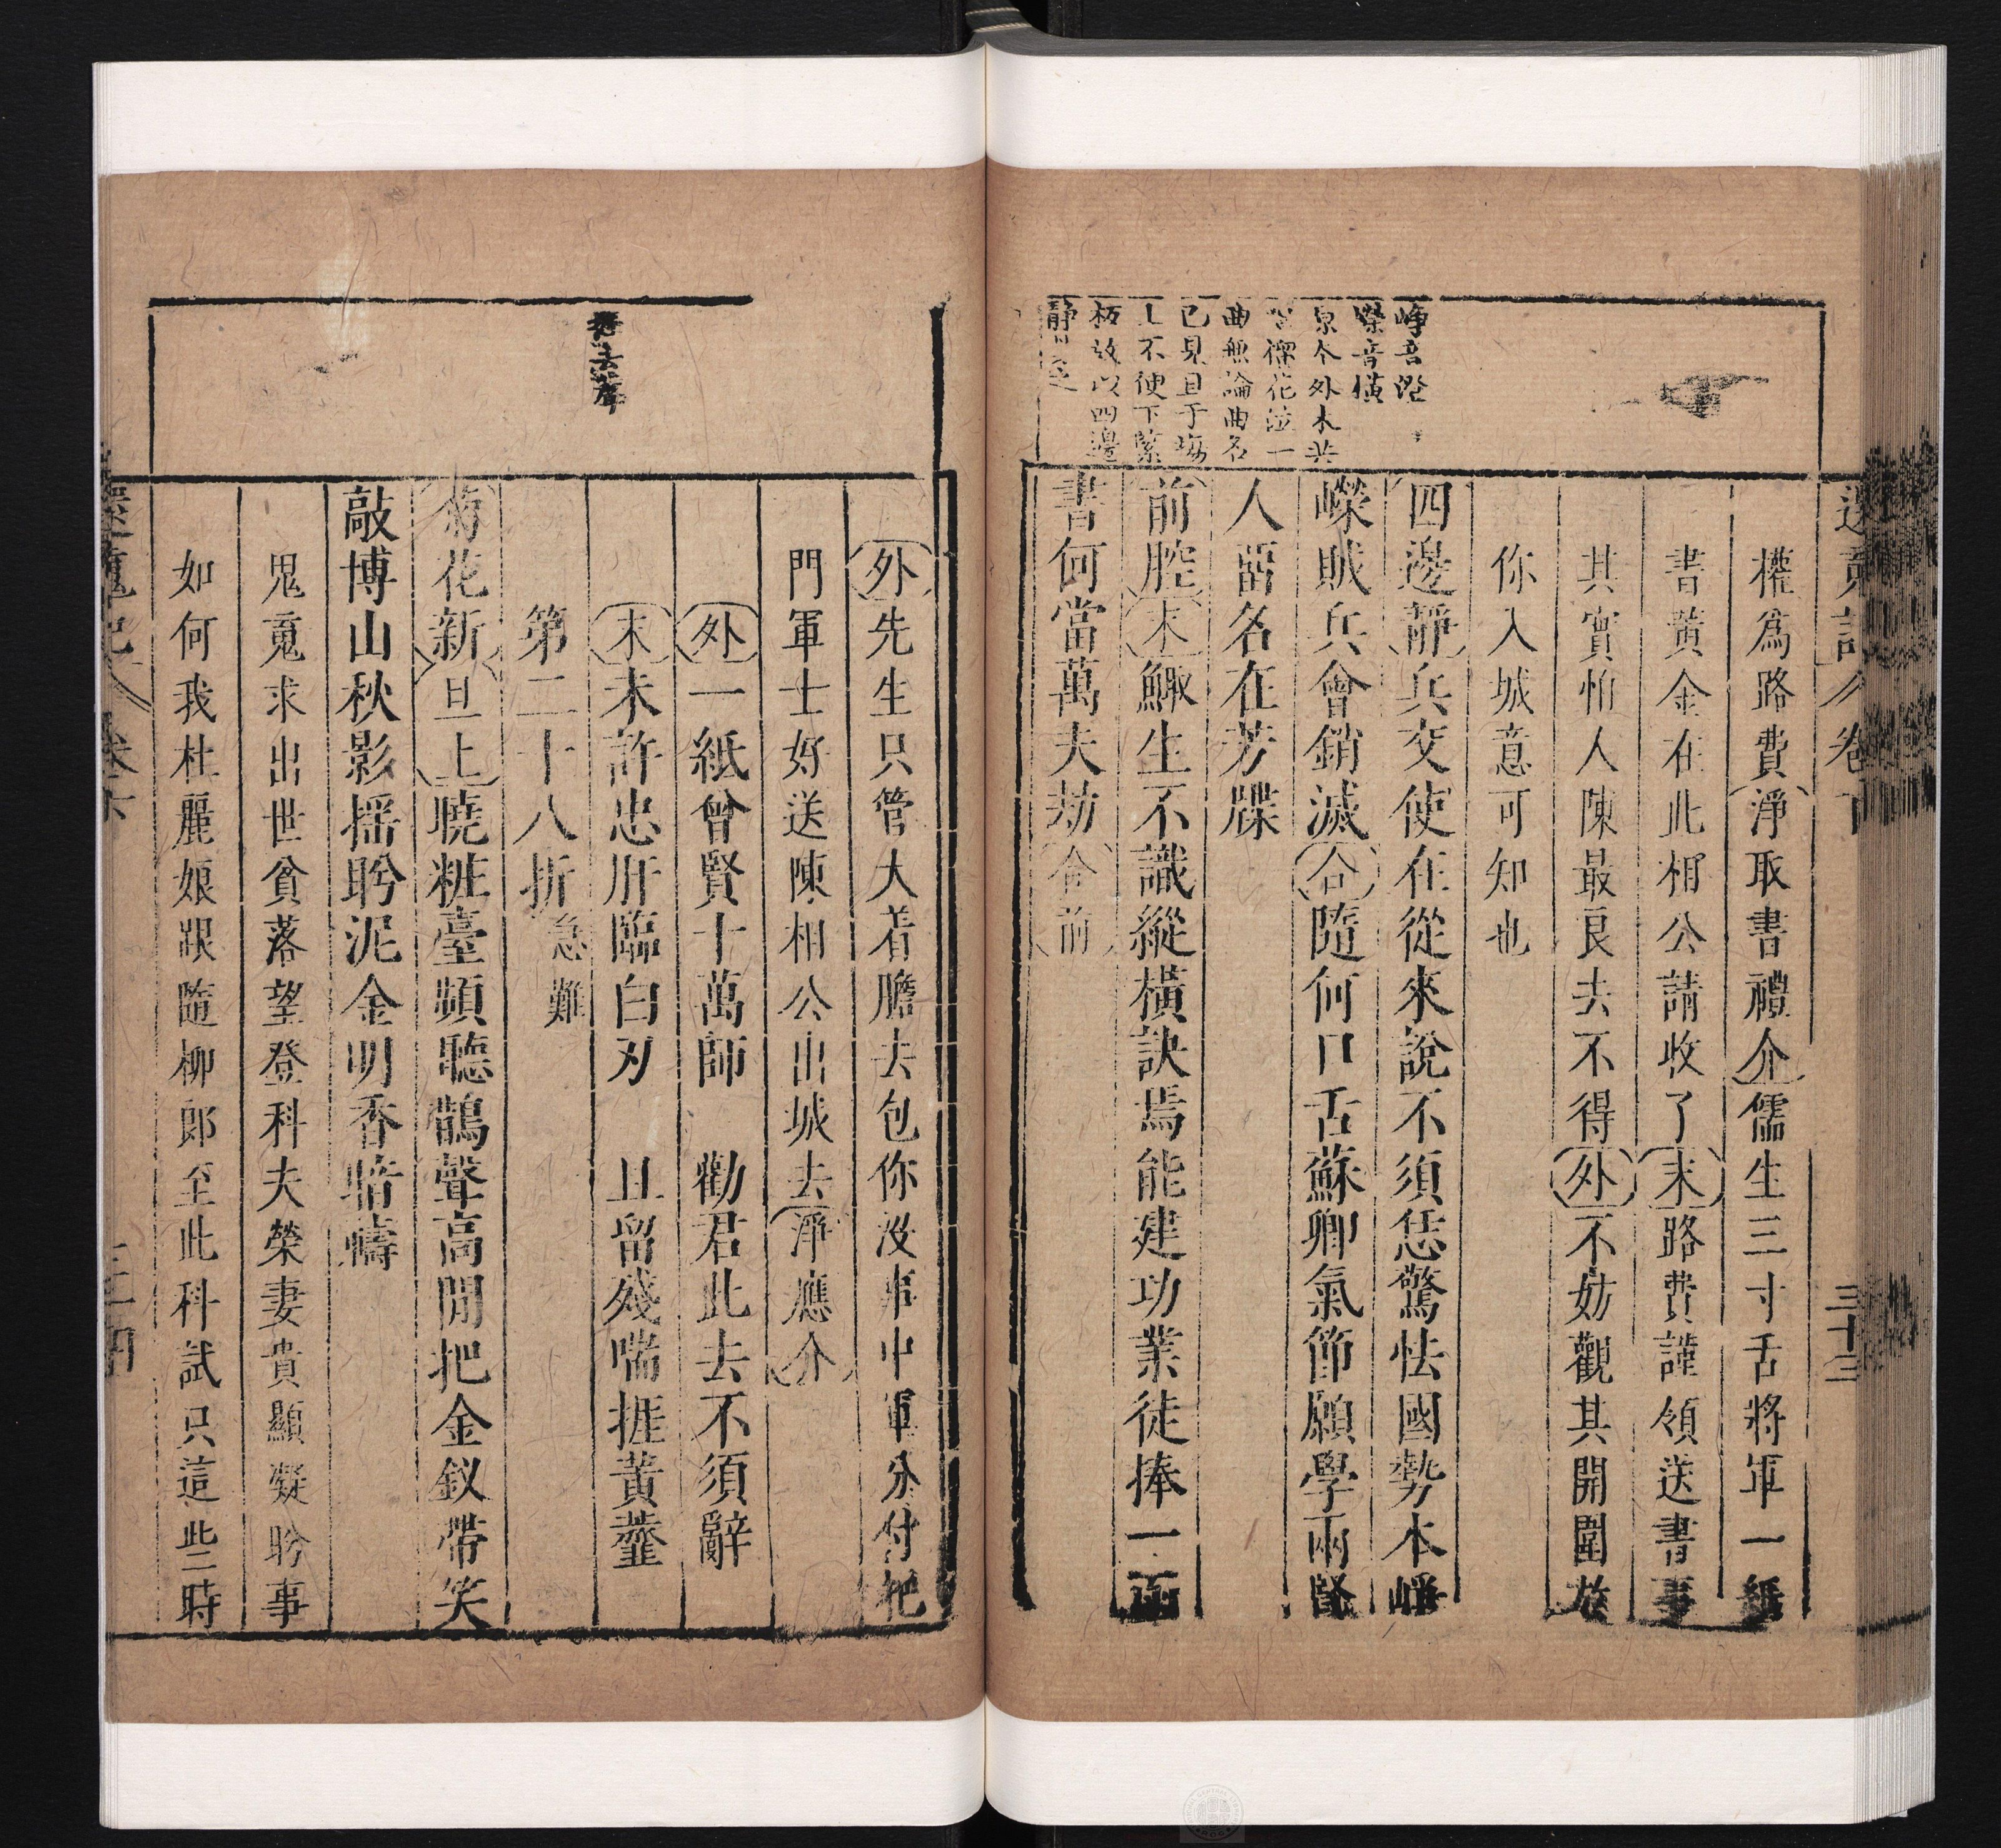 還魂記 卷下 三十三
權爲路費淨取書禮介儒生三寸舌將軍一紙
書黃金在此相公請收了末路費謹領送書事
其實怕人陳最良去不得外不妨觀其開圍放
你入城意可知也
四邊靜兵交使在從來說不須恁驚怯國勢本崢
嶸賊兵會銷滅合隨何口舌蘇卿氣節願學兩賢
人畱名在芳牒
前腔末鯫生不識縱橫訣焉能建功業徒捧一函
書何當萬夫劫合前
崢音澄
嶸音橫
原本外末共
花泣一
曲無論曲名
已見且于場
上不便下緊
板故以四邊
靜
外先生只管大着膽去包你没事中軍分付把
門軍士好送陳相公出城去淨應介
外一紙曾賢十萬師 勸君此去不須辭
末未許忠肝臨白刃 且留殘喘捱黃虀
第二十八折急難
菊花新旦上曉粧臺頻聽鵲聲高閒把金釵帶笑
敲博山秋影揺盼泥金明香暗禱
鬼魂求出世貧落望登科夫榮妻貴顯凝盼事
如何我杜麗娘跟隨柳郎至此科試只這些時
去聲
還魂記 卷下 三十四